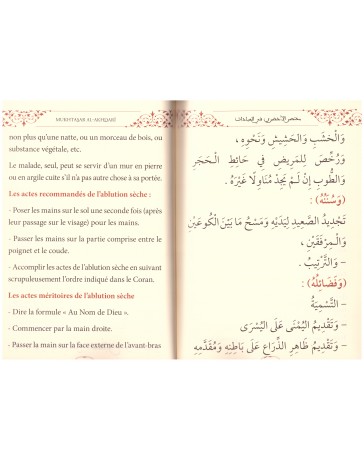 MUKHTAṢAR AL-AKHḌARĪ
non plus qu'une natte, ou un morceau de bois, ou
substance végétale, etc.
Le malade, seul, peut se servir d'un mur en pierre
ou en argile cuite s'il n'a pas autre chose à sa portée.
Les actes recommandés de l'ablution sèche :
- Poser les mains sur le sol une seconde fois (après
leur passage sur le visage) pour les mains.
- Passer les mains sur la partie comprise entre le
poignet et le coude.
- Accomplir les actes de l'ablution sèche en suivant
scrupuleusement l'ordre indiqué dans le Coran.
Les actes méritoires de l'ablution sèche
- Dire la formule « Au Nom de Dieu ».
- Commencer par la main droite.
- Passer la main sur la face externe de l'avant-bras
مختصر الأخضري في العبادات
وَالْخَشَبِ وَالْحَشِيشِ وَنَحْوِهِ،
وَرُخِّصَ لِلمَرِيضِ فِي حَائِطِ الْحَجَرِ
وَالطُّوبِ إِنْ لَمْ يَجِدْ مُنَاوِلًا غَيْرَهُ.
(وَسُنَنُهُ) :
تَجْدِيدُ الصَّعِيدِ لِيَدَيْهِ وَمَسْحُ مَا بَيْنَ الْكُوعَيْنِ
وَالْمِرْفَقَيْنِ،
- وَالتَّرْتِيبُ.
(وَفَضَائِلُهُ) :
- التَّسْمِيَةُ
- وَتَقْدِيمُ الْيُمْنَى عَلَى الْيُسْرَى
- وَتَقْدِيمُ ظَاهِرِ الذِّرَاعِ عَلَى بَاطِنِهِ وَمُقَدَّمِهِ